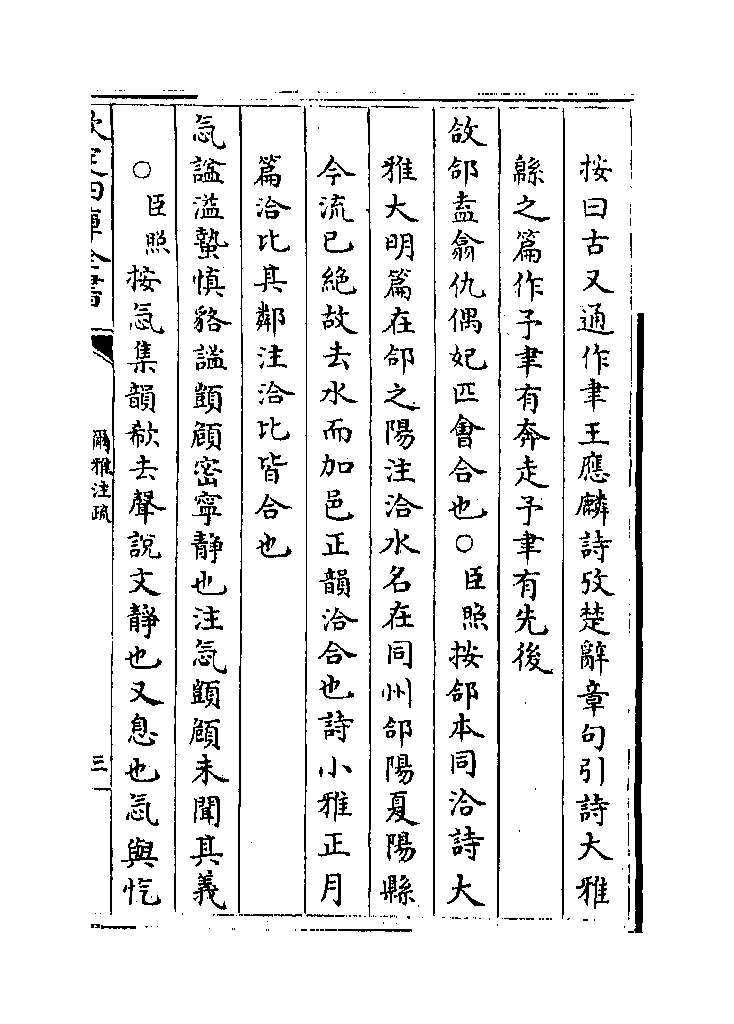 按曰古又通作聿王應麟詩攷楚辭章句引詩大雅
緜之篇作予聿有奔走予聿有先後
敆郃盍翕仇偶妃匹㑹合也○臣照按郃本同洽詩大
雅大明篇在郃之陽注洽水名在同州郃陽夏陽縣
今流已絶故去水而加邑正韻洽合也詩小雅正月
篇洽比其鄰注洽比皆合也
忥謐溢蟄慎貉謐顗頠密寧静也注忥顗頠未聞其義
○臣照按忥集韻欷去聲說文静也又息也忥與忔
欽定四庫全書
爾雅注疏
三